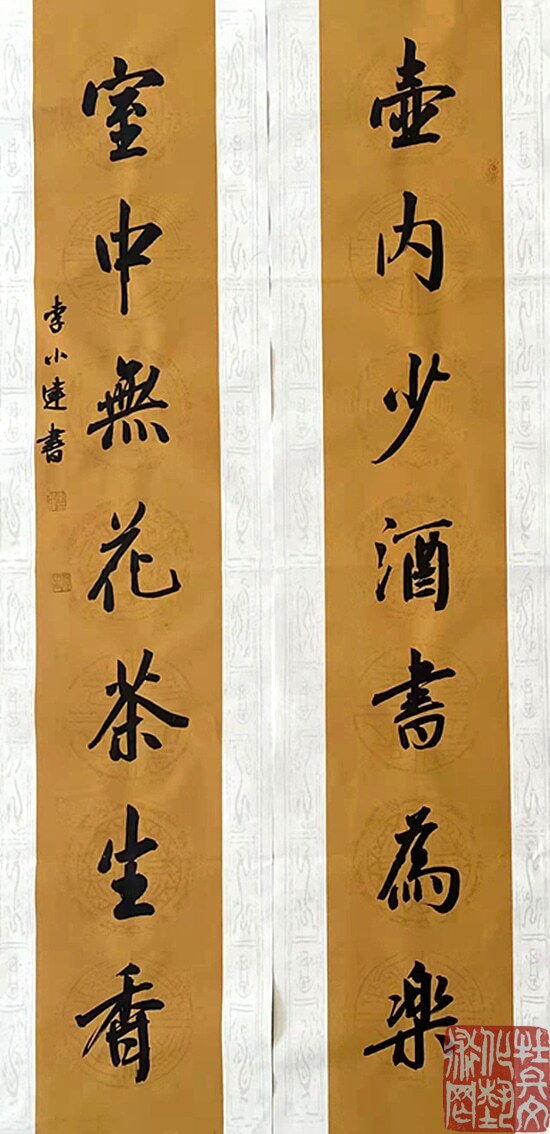 壺内少酒書為樂
室中無花茶生香
李小連書